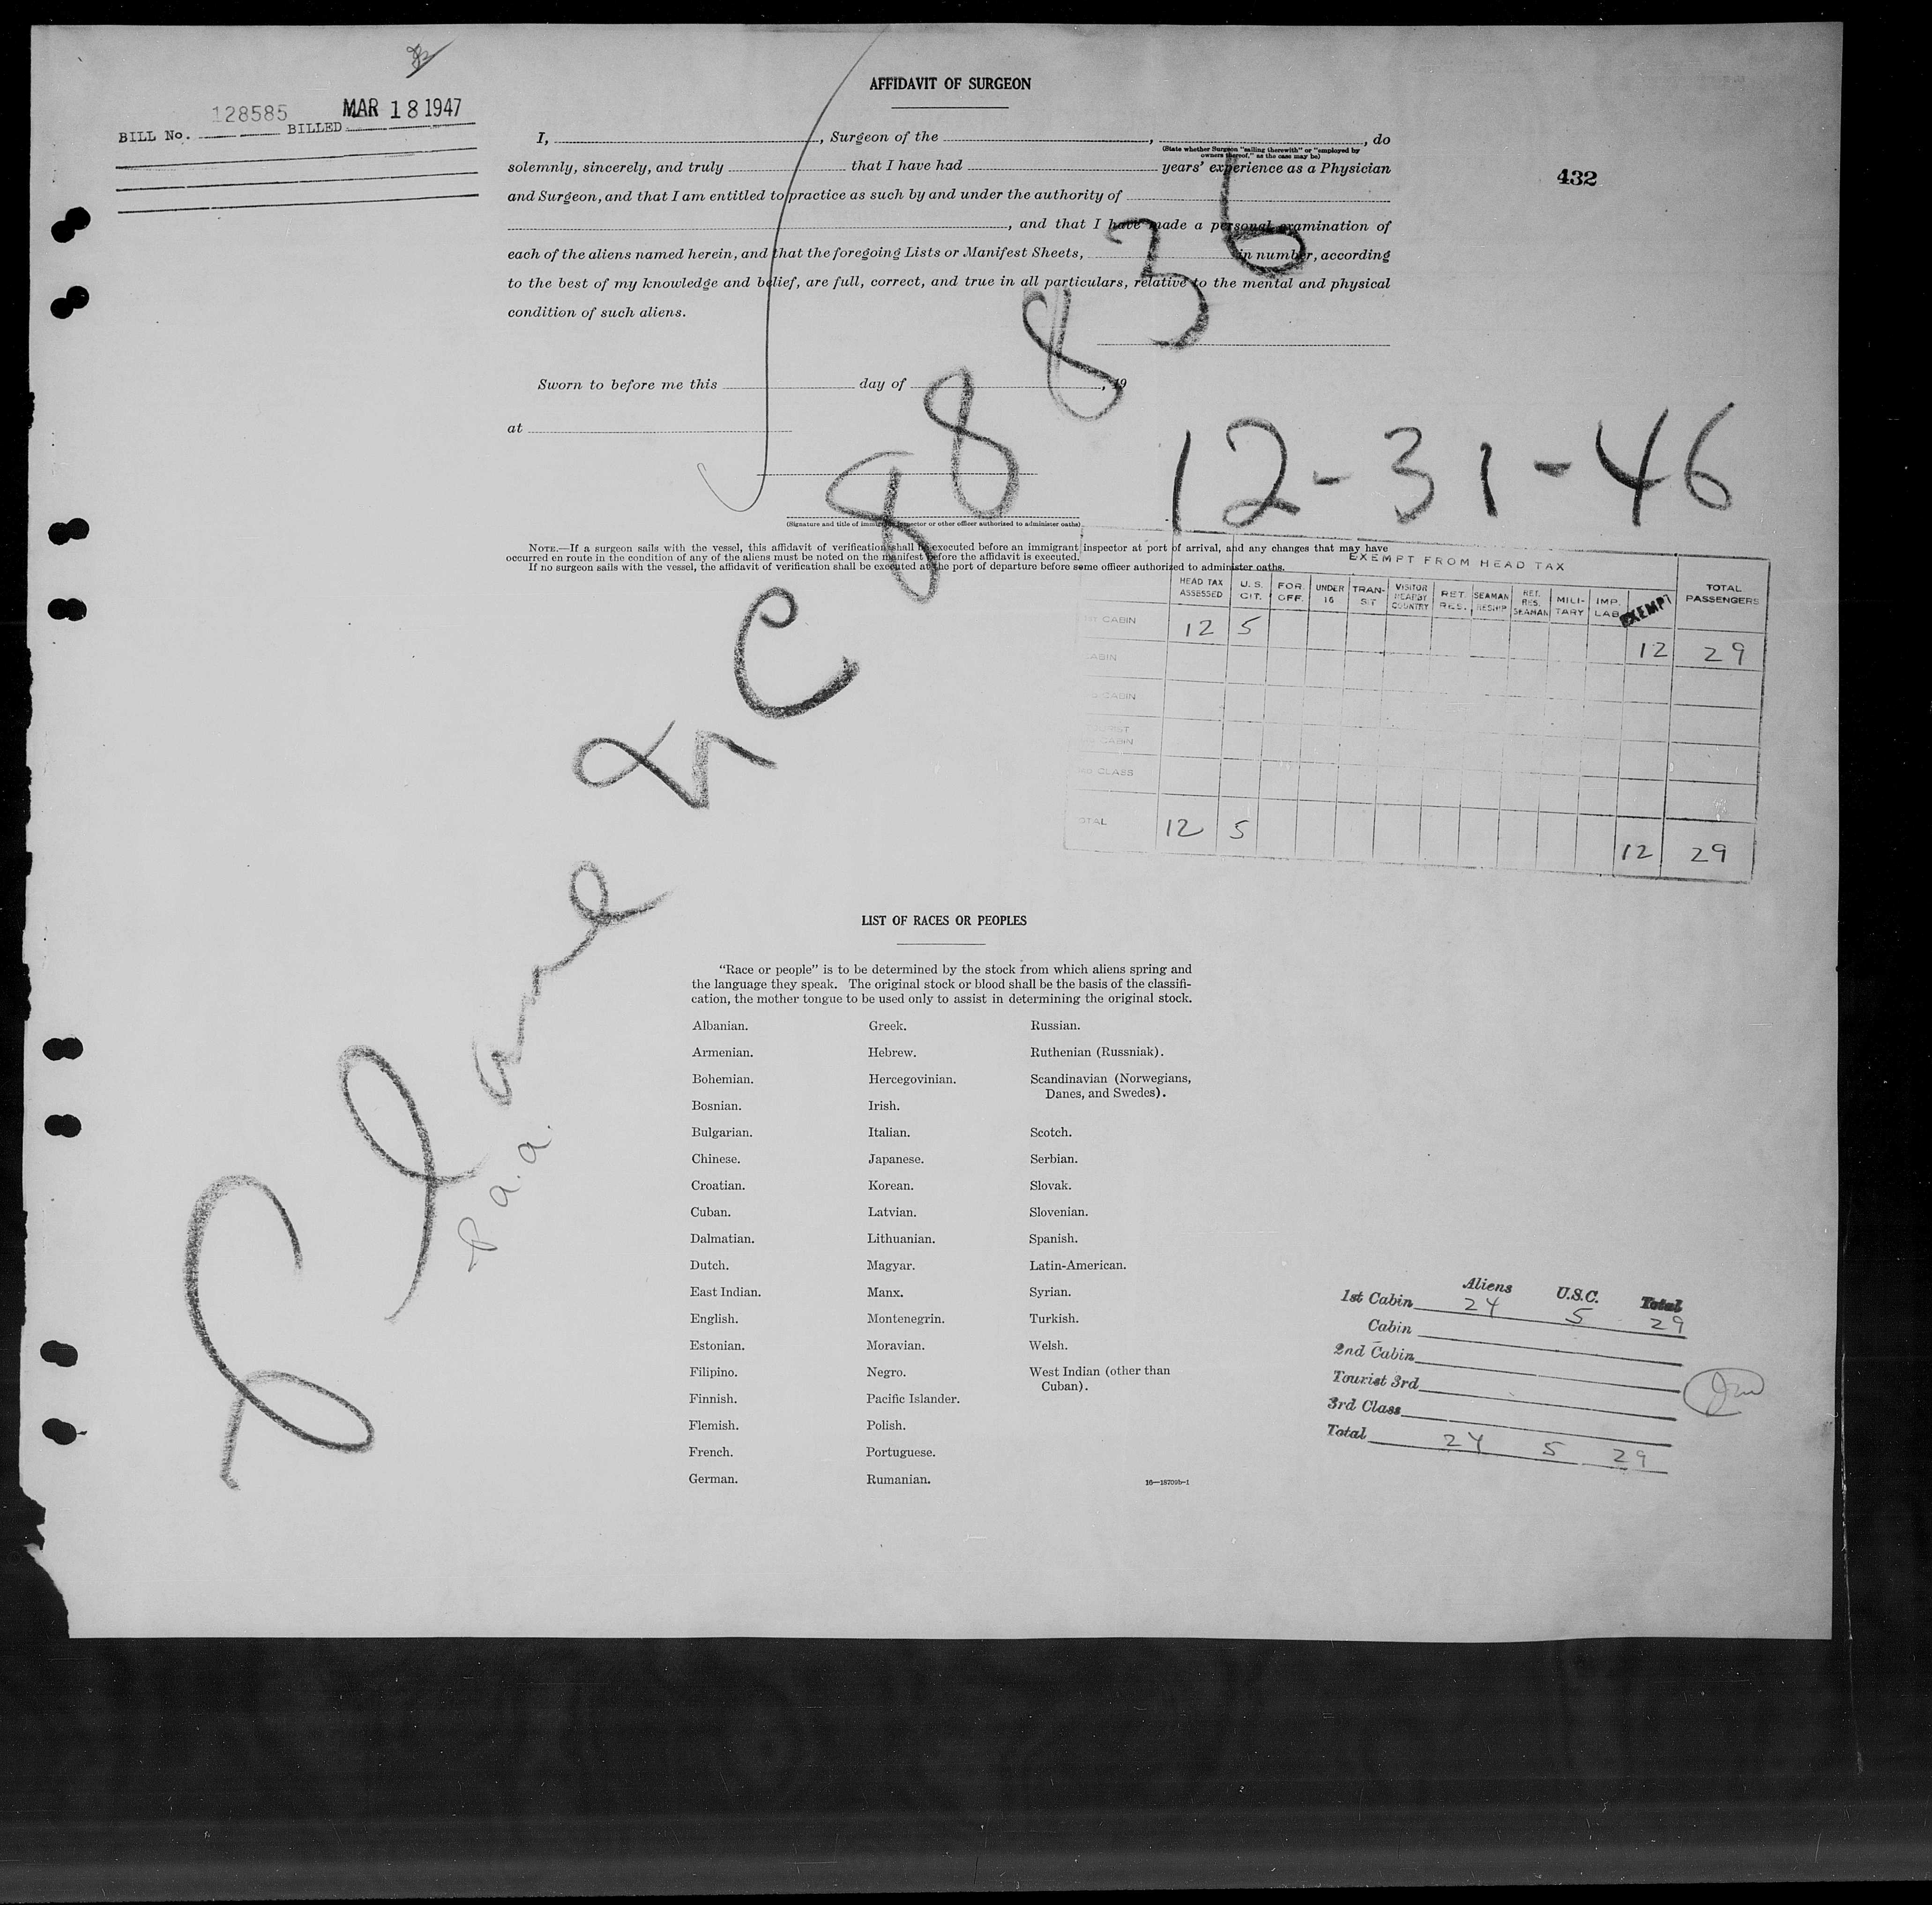 BILL No. 128585 BILLED MAR 18 1947
AFFIDAVIT OF SURGEON
I, , Surgeon of the , , do
(State whether Surgeon "sailing therewith" or "employed by
owners thereof," as the case may be)
solemnly, sincerely, and truly that I have had years' experience as a Physician
and Surgeon, and that I am entitled to practice as such by and under the authority of
, and that I have made a personal examination of
each of the aliens named herein, and that the foregoing Lists or Manifest Sheets, in number, according
to the best of my knowledge and belief, are full, correct, and true in all particulars, relative to the mental and physical
condition of such aliens.
432
Sworn to before me this day of , 19
at
(Signature and title of immigrant inspector or other officer authorized to administer oaths)
NOTE.—If a surgeon sails with the vessel, this affidavit of verification shall be executed before an immigrant inspector at port of arrival, and any changes that may have
occurred en route in the condition of any of the aliens must be noted on the manifest before the affidavit is executed.
If no surgeon sails with the vessel, the affidavit of verification shall be executed at the port of departure before some officer authorized to administer oaths.
Plane NC 88836
P.a.a.
12-31-46
EXEMPT FROM HEAD TAX
HEAD TAX ASSESSED U. S. CIT. FOR. OFF. UNDER 16 TRANSIT VISITOR NEARBY COUNTRY RET. RES. SEAMAN RESHIP RET. RES. SEAMAN MILITARY IMP. LAB. EXEMPT TOTAL PASSENGERS
CABIN 12 5 12 29
CABIN
CABIN
CABIN
CLASS
TOTAL 12 5 12 29
LIST OF RACES OR PEOPLES
"Race or people" is to be determined by the stock from which aliens spring and
the language they speak. The original stock or blood shall be the basis of the classifi-
cation, the mother tongue to be used only to assist in determining the original stock.
Albanian.
Armenian.
Bohemian.
Bosnian.
Bulgarian.
Chinese.
Croatian.
Cuban.
Dalmatian.
Dutch.
East Indian.
English.
Estonian.
Filipino.
Finnish.
Flemish.
French.
German.
Greek.
Hebrew.
Hercegovinian.
Irish.
Italian.
Japanese.
Korean.
Latvian.
Lithuanian.
Magyar.
Manx.
Montenegrin.
Moravian.
Negro.
Pacific Islander.
Polish.
Portuguese.
Rumanian.
Russian.
Ruthenian (Russniak).
Scandinavian (Norwegians,
Danes, and Swedes).
Scotch.
Serbian.
Slovak.
Slovenian.
Spanish.
Latin-American.
Syrian.
Turkish.
Welsh.
West Indian (other than
Cuban).
16—18709b-1
Aliens U.S.C. Total
1st Cabin 24 5 29
Cabin
2nd Cabin
Tourist 3rd
3rd Class
Total 24 5 29